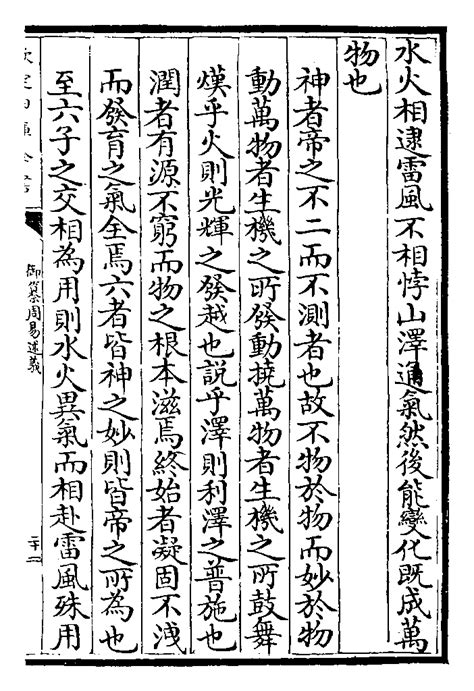 水火相逮雷風不相悖山澤通氣然後能變化既成萬
物也
神者帝之不二而不測者也故不物於物而妙於物
動萬物者生機之所發動撓萬物者生機之所鼓舞
熯乎火則光輝之發越也説乎澤則利澤之普施也
潤者有源不窮而物之根本滋焉終始者凝固不洩
而發育之氣全焉六者皆神之妙則皆帝之所為也
至六子之交相為用則水火異氣而相赴雷風殊用
欽定四庫全書
御纂周易述義
二十二